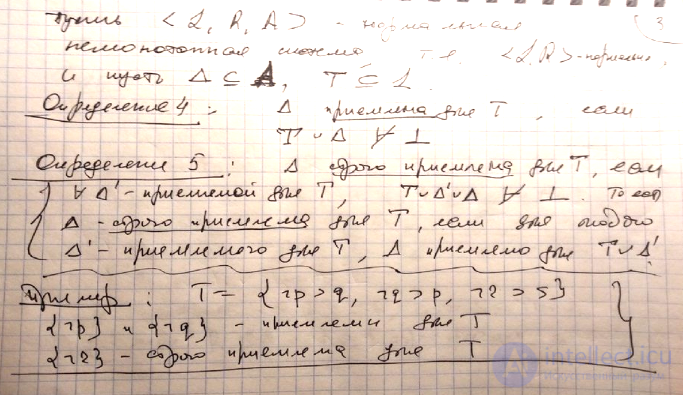 Пусть < L, R, A > - нормальная 3
немонотонная система т.е. <L, R>-нормальна,
и пусть Δ ⊆ A, T ⊆ L.
Определение 4: Δ приемлема для T, если
T ∪ Δ ⊬ ⊥
Определение 5: Δ строго приемлема для T, если
∀ Δ' - приемлемой для T, T∪Δ'∪Δ ⊬ ⊥. То есть
Δ - строго приемлема для T, если для любого
Δ' - приемлемого для T, Δ приемлемо для T∪Δ'.
Пример: T = {¬p⊃q, ¬q⊃p, ¬r⊃s}
{¬p} и {¬q} - приемлемы для T
{¬r} - строго приемлема для T
intellect.icu